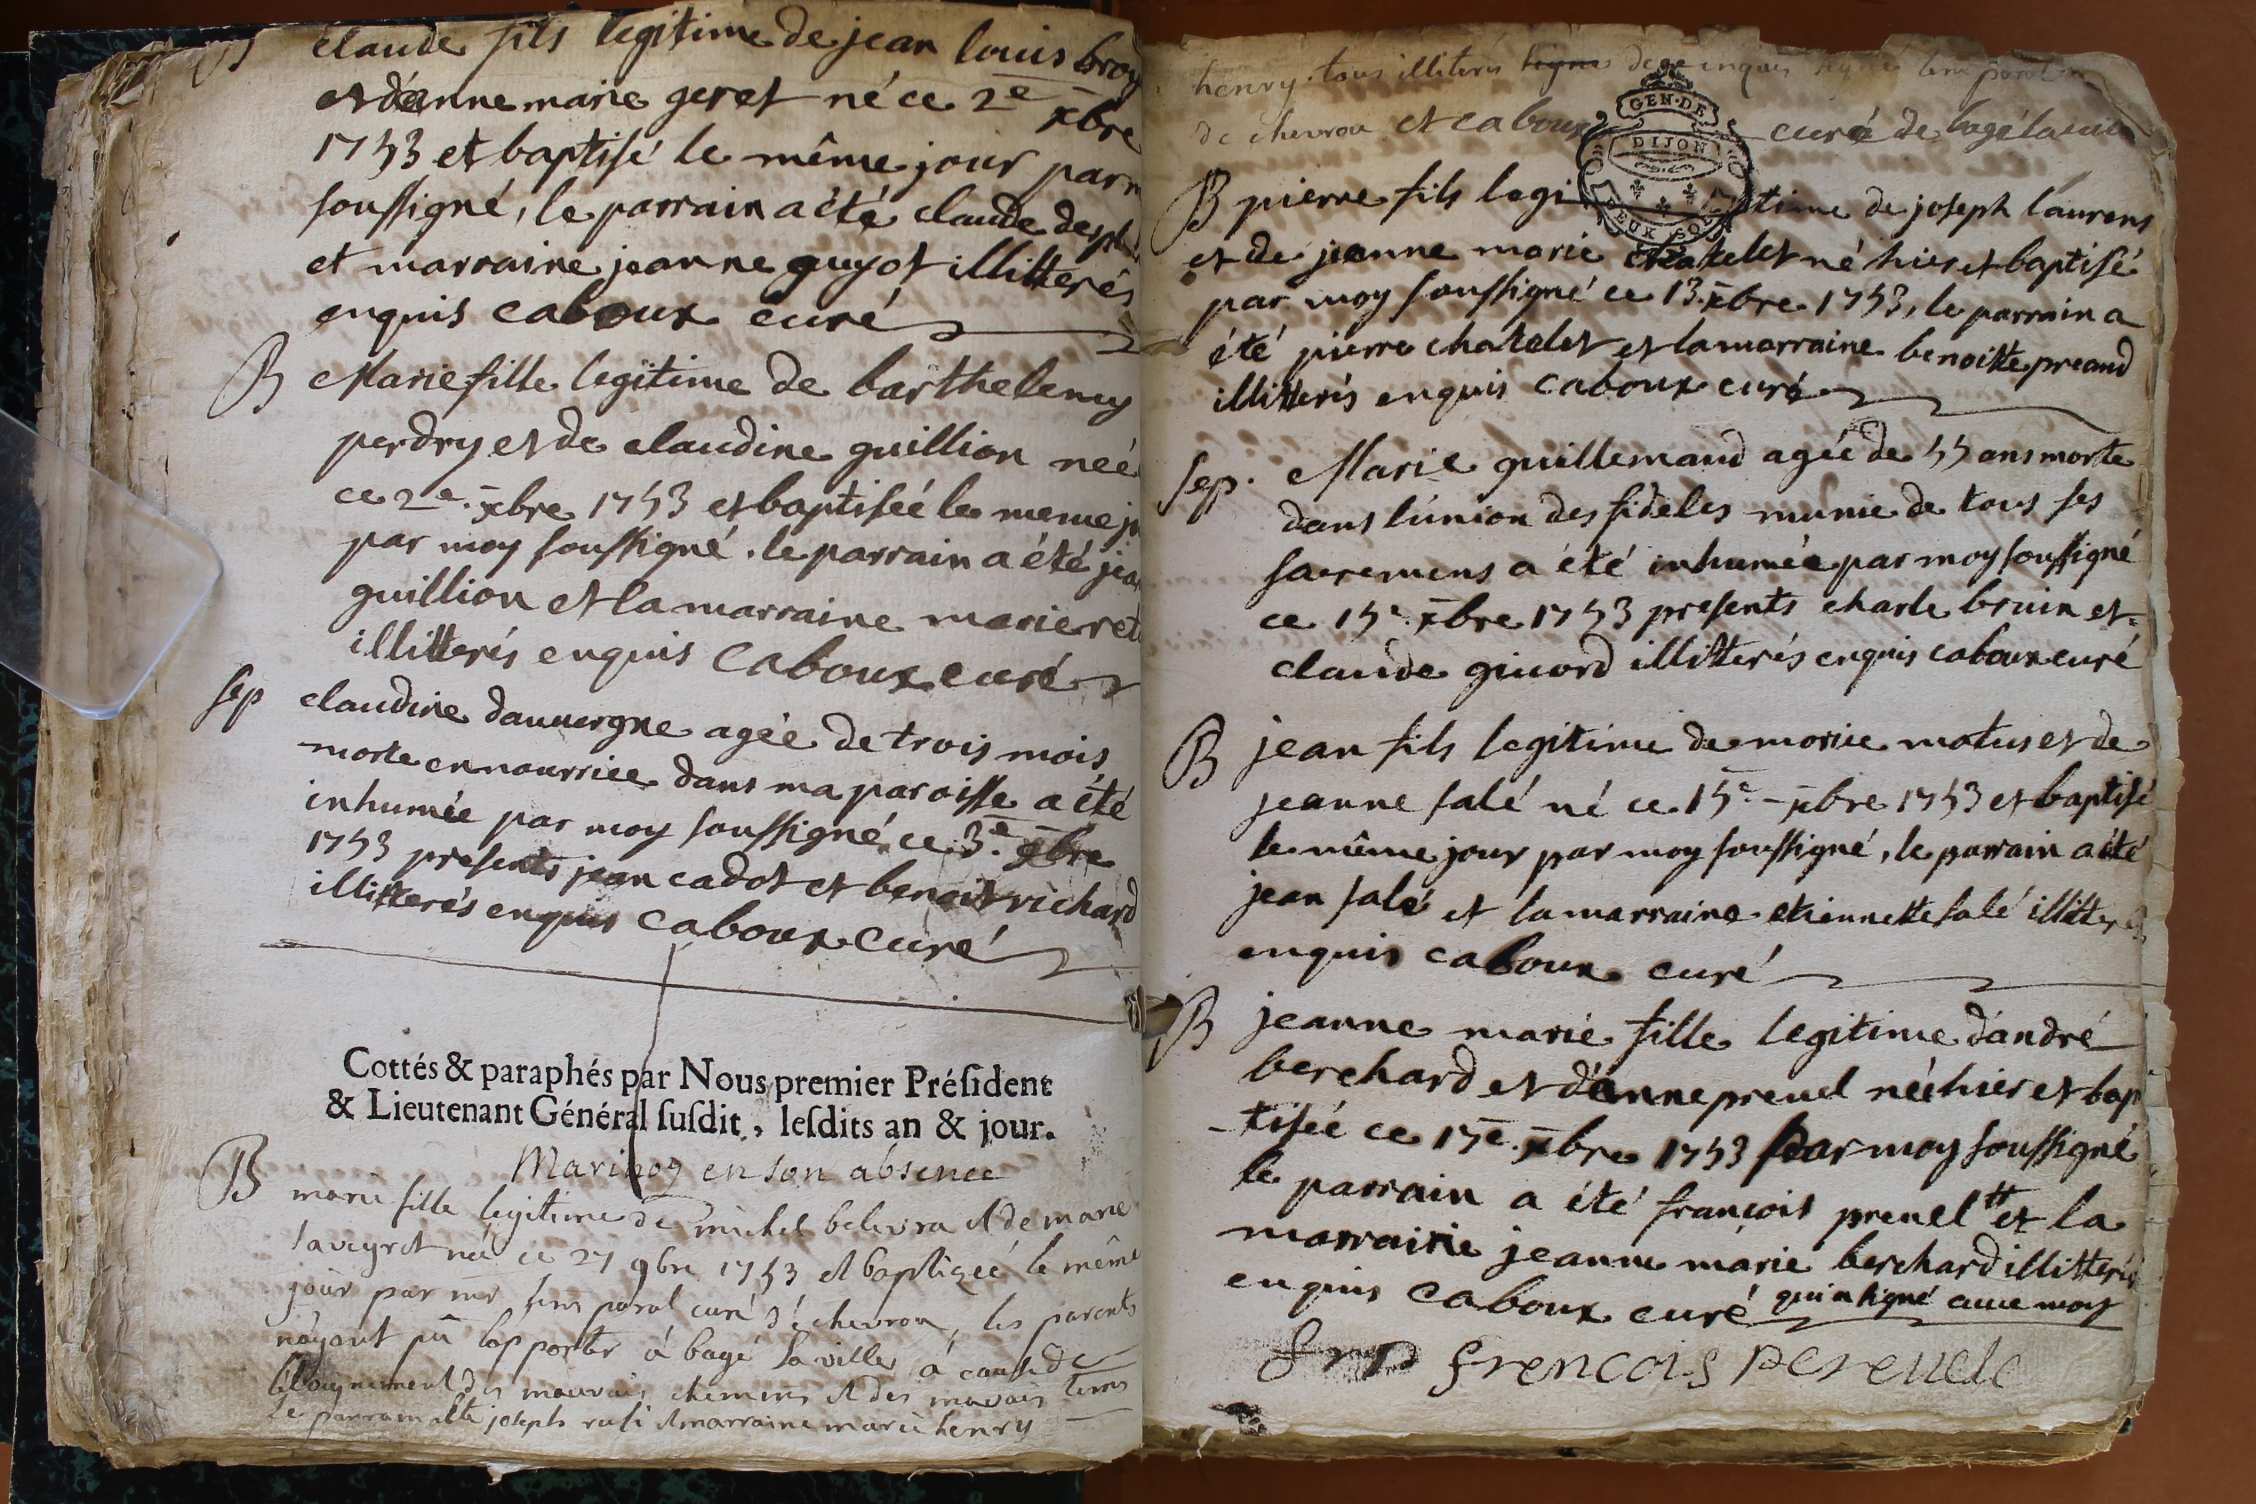 B claude fils legitime de jean louis broy
et d'anne marie geret né ce 2e xbre
1753 et baptisé le même jour par m
soussigné, le parrain a été claude
et marraine jeanne guyot illitterés
enquis caboux curé
B Marie fille legitime de barthelemy
perdry et de claudine guillion née
ce 2e. xbre 1753 et baptisée le meme j
par moy soussigné. le parrain a été jea
guillion et la marraine marie
illitterés enquis caboux curé
sep claudine dauuergne agée de trois mois
morte en nourrice dans ma paroisse a été
inhumée par moy soussigné ce 3.e xbre
1753 presents jean cadot et benoit richard
illitterés enquis caboux curé
Cottés & paraphés par Nous premier Présideent
& Lieutenant Général susdit, lesdits an & jour.
en son absence
B marie fille legitime de michel et de marie
née ce 27 9bre 1753 et baptizeé le même
jour par curé de chevrou, les parents
n'ayant pû l'apporter á bagé la ville á cause de
l'éloignement des mauvais chemins et des mauvais tems
le parrain a été joseph et marraine marie henry
henry tous illiterés de ce enquis
de chevrou et caboux curé de bagé la ville
B pierre fils legitime de joseph laurens
et de jeanne marie chatelet né hier et baptisé
par moy soussigné ce 13. xbre 1753, le parrain a
été pierre chatelet et la marraine benoitte preaud
illitterés enquis caboux curé
GEN·DE
DIJON
DEUX SOLS
sep. Marie guillemaud agée de 55 ans morte
dans l'union des fideles munie de tous ses
sacremens a été inhumée par moy soussigné
ce 15e. xbre 1753 presents charle bruin et
claude illitterés enquis caboux curé
B jean fils legitime de morice motus et de
jeanne salé né ce 15e. xbre 1753 et baptisé
le même jour par moy soussigné, le parrain a été
jean salé et la marraine etiennette salé illitterés
enquis caboux curé
B jeanne marie fille legitime d'andré
berchard et d'anne preuel née hier et bap
-tisée ce 17e. xbre 1753 par moy soussigné
le parrain a été françois preuel et la
marraine jeanne marie berchard illitterés
enquis caboux curé qui a signé auec moy
frencois pereuele